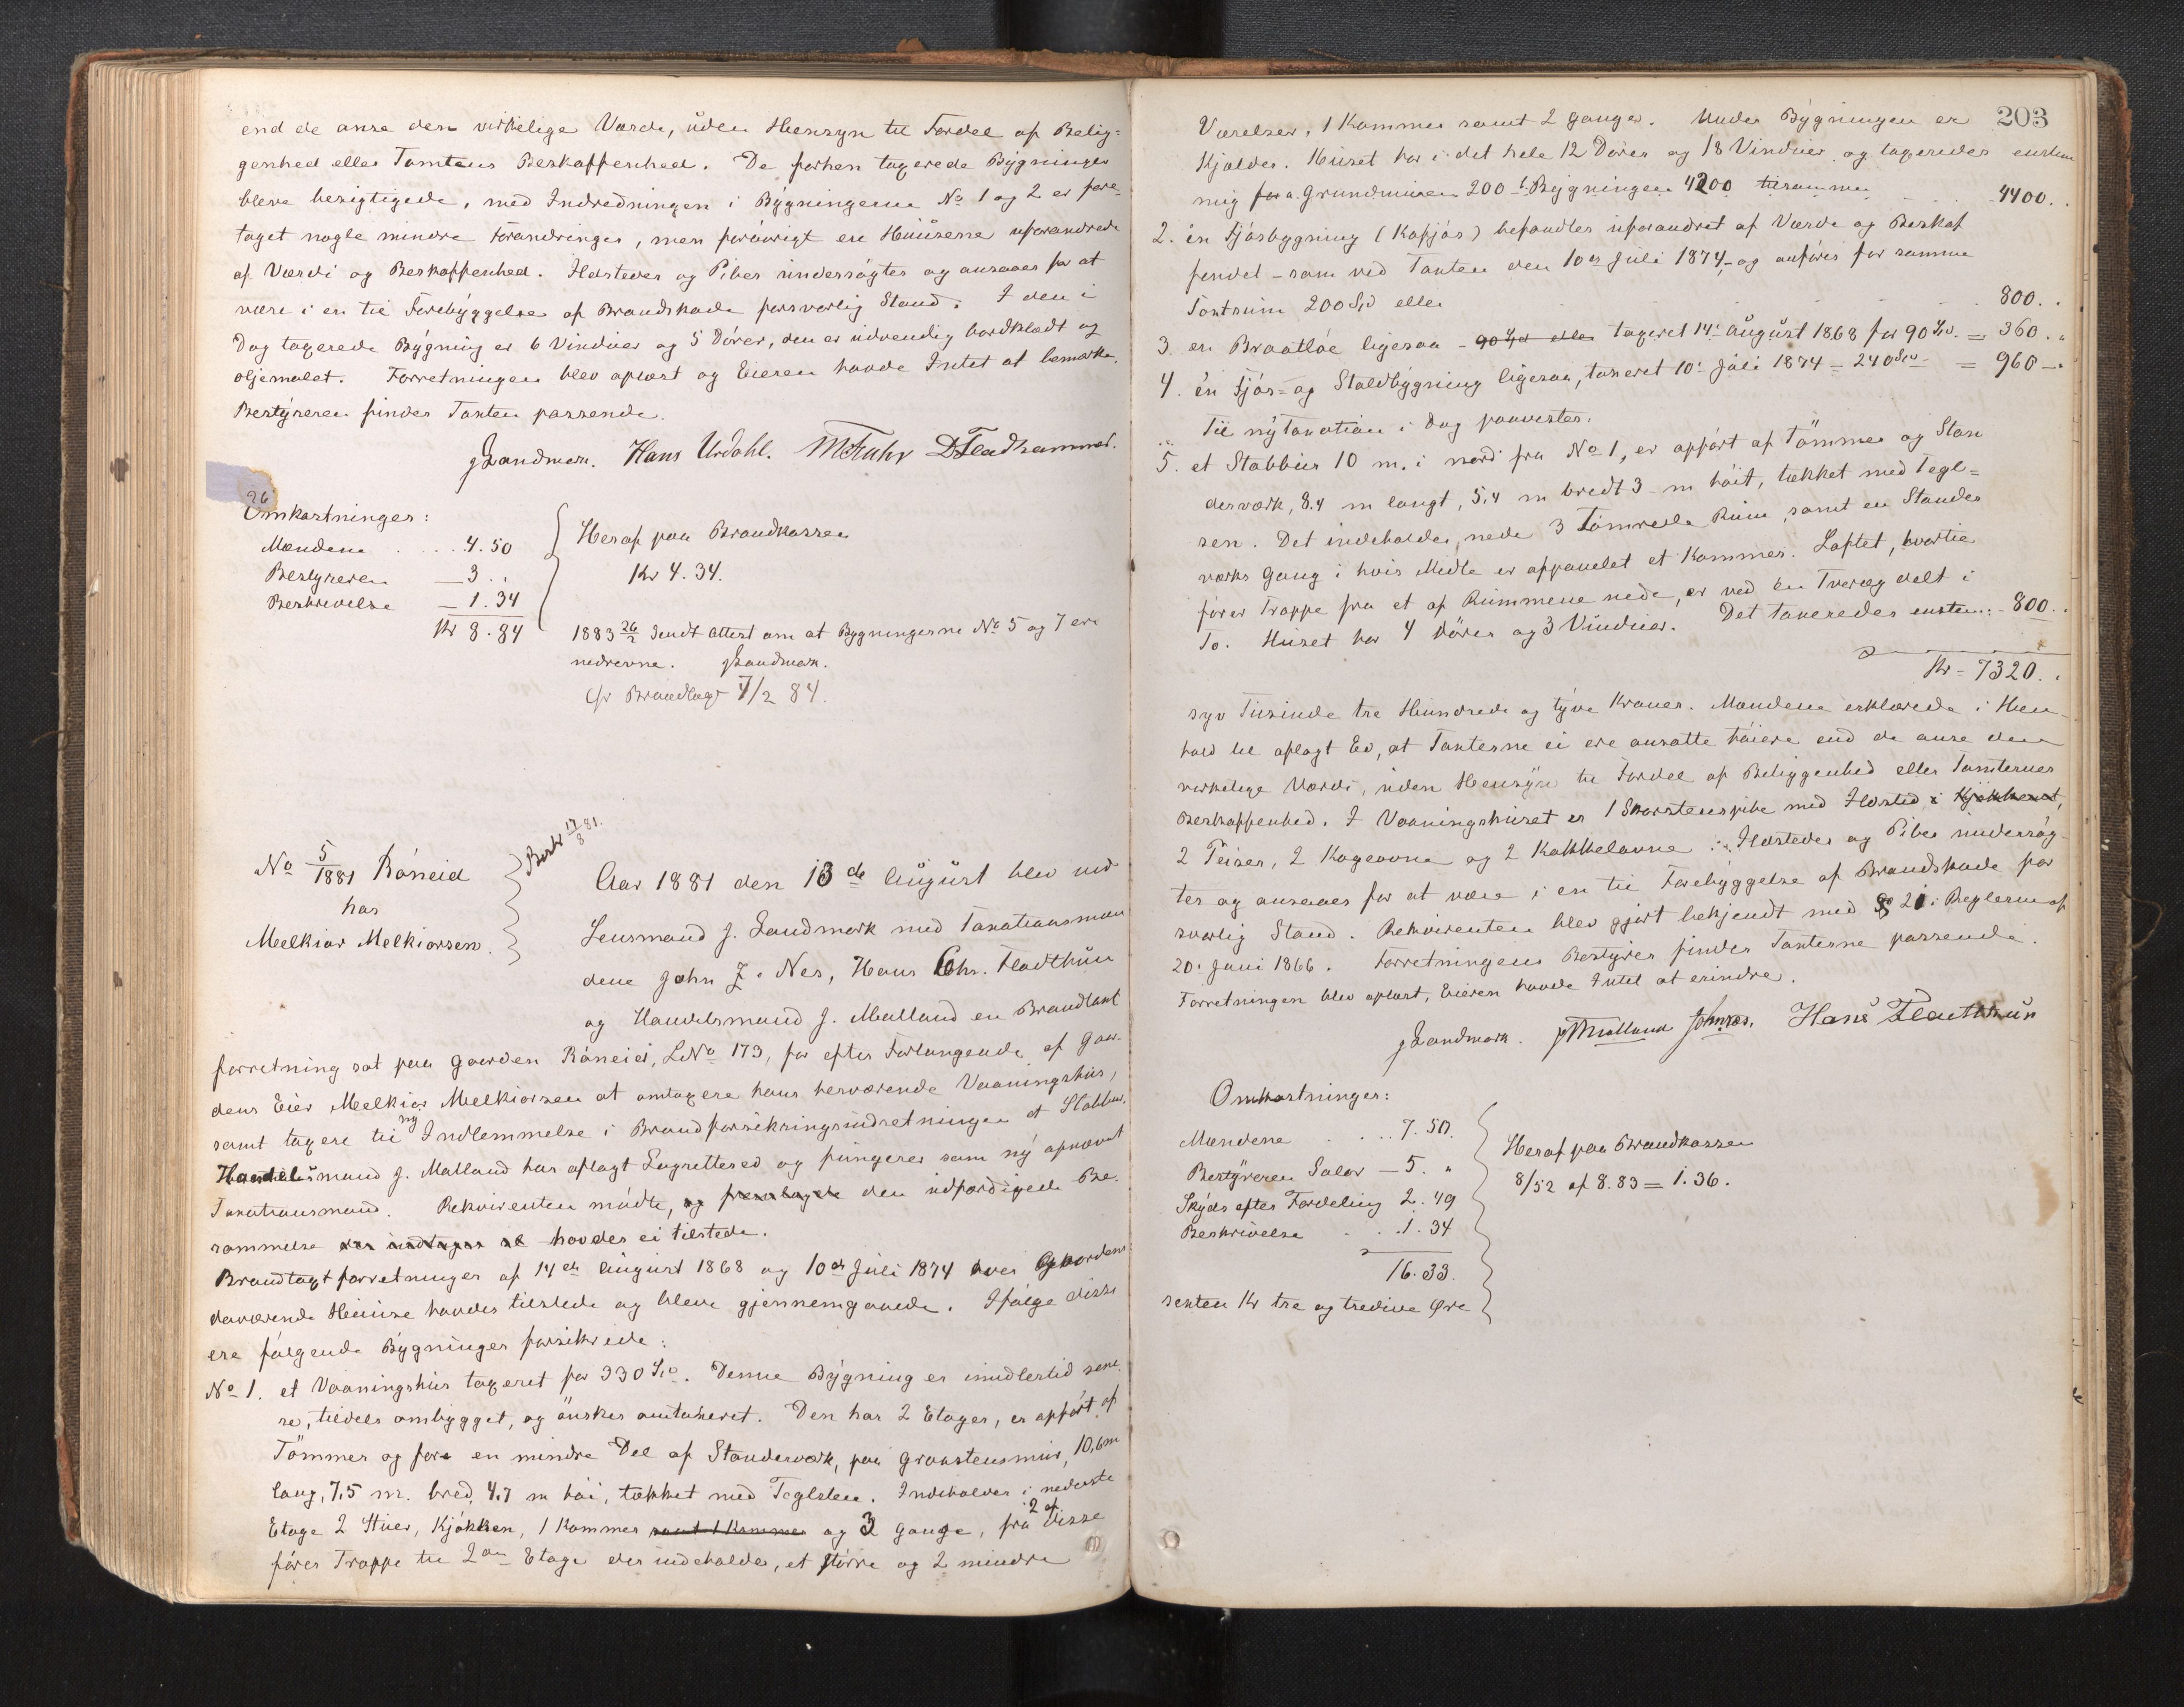 end de anse den virkelige Værde, uden Hensyn til Fordel af Belig=
genhed eller Tomtens Beskaffenhed. De forhen taxerede Bygninger
bleve besigtigede, med Indredningen i Bygningerne No 1 og 2 er fore-
taget nogle mindre Forandringer, men forøvrigt ere Husene uforandrede
af Værdi og Beskaffenhed. Ildsteder og Piber undersøgtes og ansaaes for at
være i en til Forebyggelse af Brandskade forsvarlig Stand. I den i
Dag taxerede Bygning er 6 Vinduer og 5 Dører, den er udvendig bordklædt og
oljemalet. Forretningen blev oplæst og Eieren havde Intet at bemærke.
Bestyreren finder Taxten passende.
J Landmark. Hans Urdahl. M Fuhr D Fladhammer.
26
Omkostninger:
Mændene . . . 4.50
Bestyreren — 3 . „
Beskrivelse — 1.34
Kr 8.84
Heraf paa Brandkassen
Kr 4.34.
1883 26/2 Sendt Attest om at Bygningerne No 5 og 7 ere
nedrevne. J Landmark.
Cfr Brandtagt 7/2 84.
No 5/1881 Røneid
har
Melkior Melkiorsen.
Beskr 17/8 81.
Aar 1881 den 13de August blev ved
Lensmand J. Landmark med Taxationsmæn
dene John J. Nes, Hans Chr. Fladthun
og Handelsmand J. Malland en Brandtaxt
forretning sat paa Gaarden Røneid, LNo 173, for efter Forlangende af Gaar-
dens Eier Melkior Melkiorsen at omtaxere hans herværende Vaaningshus,
samt taxere til ny Indlemmelse i Brandforsikringsindretningen et Stabbur.
Handelsmand J. Malland har aflagt Lagrettesed og fungerer som ny opnævnt
Taxationsmand. Rekvirenten mødte, og fremlagde den udfærdigede Be-
rammelse der indtages al havdes ei tilstede.
Brandtaxtforretninger af 14de August 1868 og 10de Juli 1874 over Gaardens
daværende Huse havdes tilstede og bleve gjennemgaaede. Ifølge disse
ere følgende Bygninger forsikrede:
No 1. et Vaaningshus taxeret for 330 Spd. Denne Bygning er imidlertid sene-
re, tildels ombygget, og ønskes omtaxeret. Den har 2 Etager, er opført af
Tømmer og for en mindre Del af Standerværk, paa Graastensmur, 10,6 m
lang, 7,5 m. bred, 4,7 m høi, tækket med Teglsten. Indeholder i nederste
Etage 2 Stuer, Kjøkken, 1 Kammer samt 1 Kammer og 3 Gange, fra 2 af disse
fører Trappe til 2den Etage der indeholder, et større og 2 mindre
203
Værelser, 1 Kammer samt 2 Gange. Under Bygningen er
Kjælder. Huset har i det hele 12 Dører og 18 Vinduer og taxeredes enstem
mig for a. Grundmuren 200 b. Bygningen 4200 tilsammen . . . 4400. „
2. én Fjøsbygning (Kofjøs) befandtes uforandret af Værde og Beskaf
fenhed – som ved Taxten den 10de Juli 1874,– og anføres for samme
Taxtsum 200 Spd eller . . . 800. „
3. en Braatløe ligesaa – 90 Spd eller taxeret 14. August 1868 for 90 Spd. = 360. „
4. én Fjøs- og Staldbygning ligesaa, taxeret 10. Juli 1874 = 240 Spd = 960 – „
Til ny Taxation i Dag paavistes:
5. et Stabbur 10 m. i nord fra No 1, er opført af Tømmer og Stan
derværk, 8.4 m langt, 5,4 m bredt 3 m høit, tækket med Tegl=
sten. Det indeholder, nede 3 tømrede Rum, samt en Stander
værks Gang i hvis Midte er afpanelet et Kammer. Loftet, hvortil
fører Trappe fra et af Rummene nede, er ved en Tvervæg delt i
to. Huset har 4 Dører og 3 Vinduer. Det taxeredes enstem: – 800. „
Kr – 7320. „
syv Tusinde tre Hundrede og tyve Kroner. Mændene erklærede i Hen-
hold til aflagt Ed, at Taxterne ei ere ansatte høiere end de anse den
virkelige Værdi, uden Hensyn til Fordel af Beliggenhed eller Tomternes
Beskaffenhed. I Vaaningshuset er 1 Skorstenspibe med Ildsted i Kjøkkenet,
2 Peiser, 2 Kogeovne og 2 Kakkelovne. Ildsteder og Piber undersøg-
tes og ansaaes for at være i en til Forebyggelse af Brandskade for
svarlig Stand. Rekvirenten blev gjort bekjendt med § 21 i Reglerne af
20. Juni 1866. Forretningens Bestyrer finder Taxterne passende.
Forretningen blev oplæst, Eieren havde Intet at erindre.
J Landmark. J Malland John Nes. Hans Flatthun
Omkostninger:
Mændene . . . 7.50.
Bestyreren Salær — 5. „
Skyds efter Fordeling 2.49
Beskrivelse . . . 1.34
16.33.
sexten Kr tre og tredive Øre
Heraf paa Brandkassen
8/52 af 8.83 = 1.36.